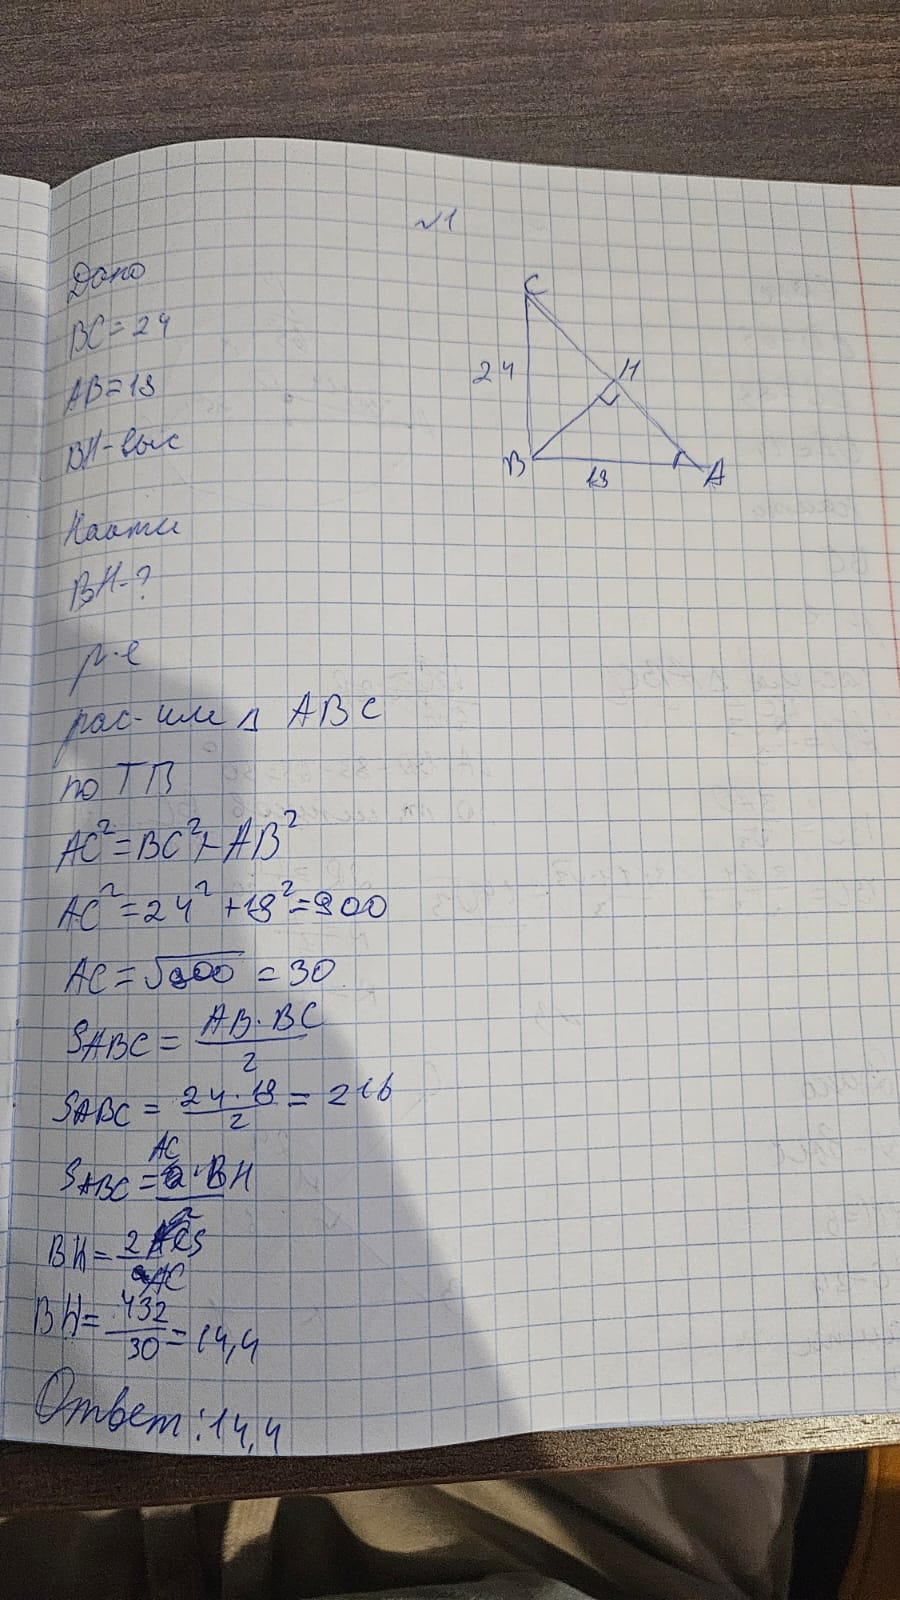 №1
Дано
BC=24
AB=18
BH-выс
C
24
H
B
18
A
Найти
BH-?
р-е
рас-им △ ABC
по ТП
AC²=BC²+AB²
AC²=24²+18²=900
AC=√900=30
S_ABC = AB·BC/2
S_ABC = 24·18/2 = 216
S_ABC = AC·BH
BH = 2S/AC
BH = 432/30 = 14,4
Ответ: 14,4